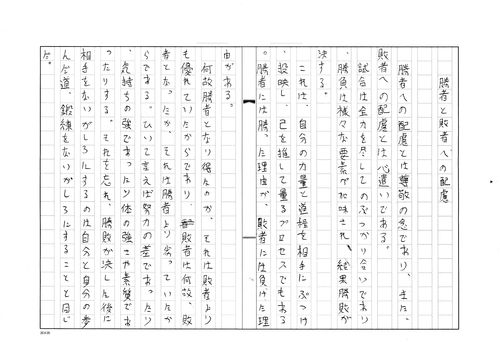 勝者と敗者への配慮
勝者への配慮とは尊敬の念であり、また、
敗者への配慮とは心遣いである。
試合は全力を尽してのぶつかり合いであり
、勝負は様々な要素が加味され、結果勝敗が
決する。
これは、自分の力量と道程を相手にぶつけ
、投映し、己を推して量るプロセスでもある
。勝者には勝った理由が、敗者には負けた理
由がある。
何故勝者となり得たのか、それは敗者より
も優れていたからであり、敗者は何故、敗
者となったか、それは勝者より劣っていたか
らである。ひいて言えば努力の差であったり
、気持ちの強さであったり体の強さや素質であ
ったりする。それを忘れ、勝敗が決した後に
相手をないがしろにするのは自分と自分の歩
んだ道、鍛練をないがしろにすることと同じ
だ。